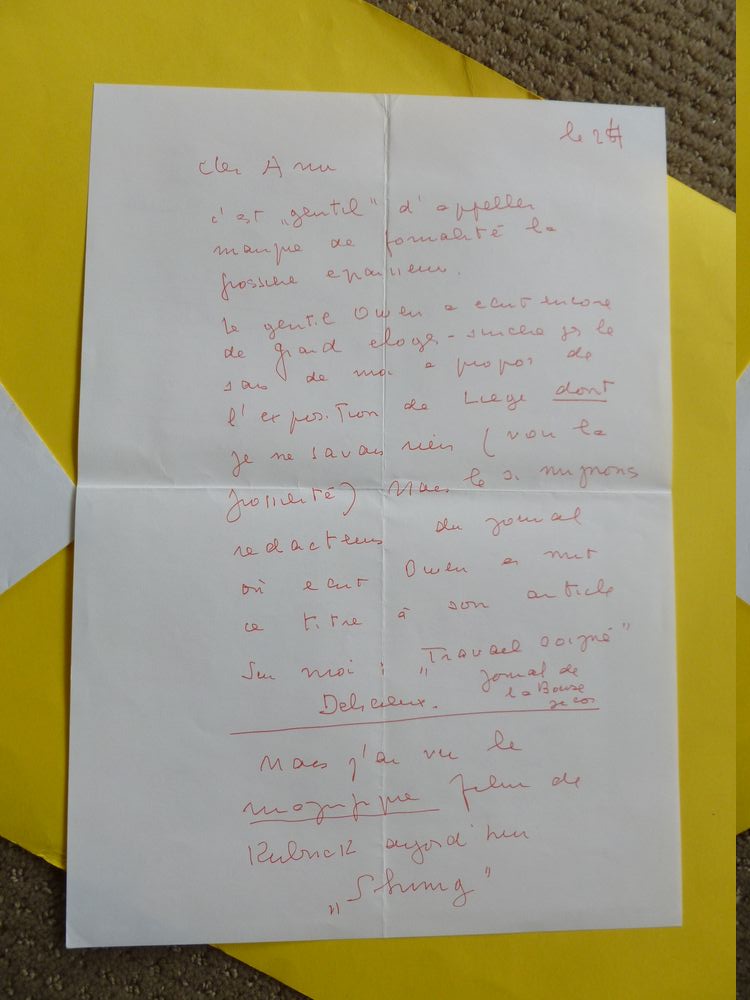 le 24
cher Ann
c'est „gentil" d'appeller
manque de formalité la
grossiere epaisseur.
le gentil Owen a ecrit encore
de grand eloges - sincere je le
sais de moi a propos de
l'exposition de Liege dont
je ne savais rien (voir la
grossierité) Mais le si mignons
redacteurs du journal
où ecrit Owen a mit
ce titre à son article
sur moi : "Travail soigné"
Delicieux. Jornal de
la Bourse
je cois
Mais j'ai vu le
magnifique film de
Kubrick aujord'hui
„Shining"